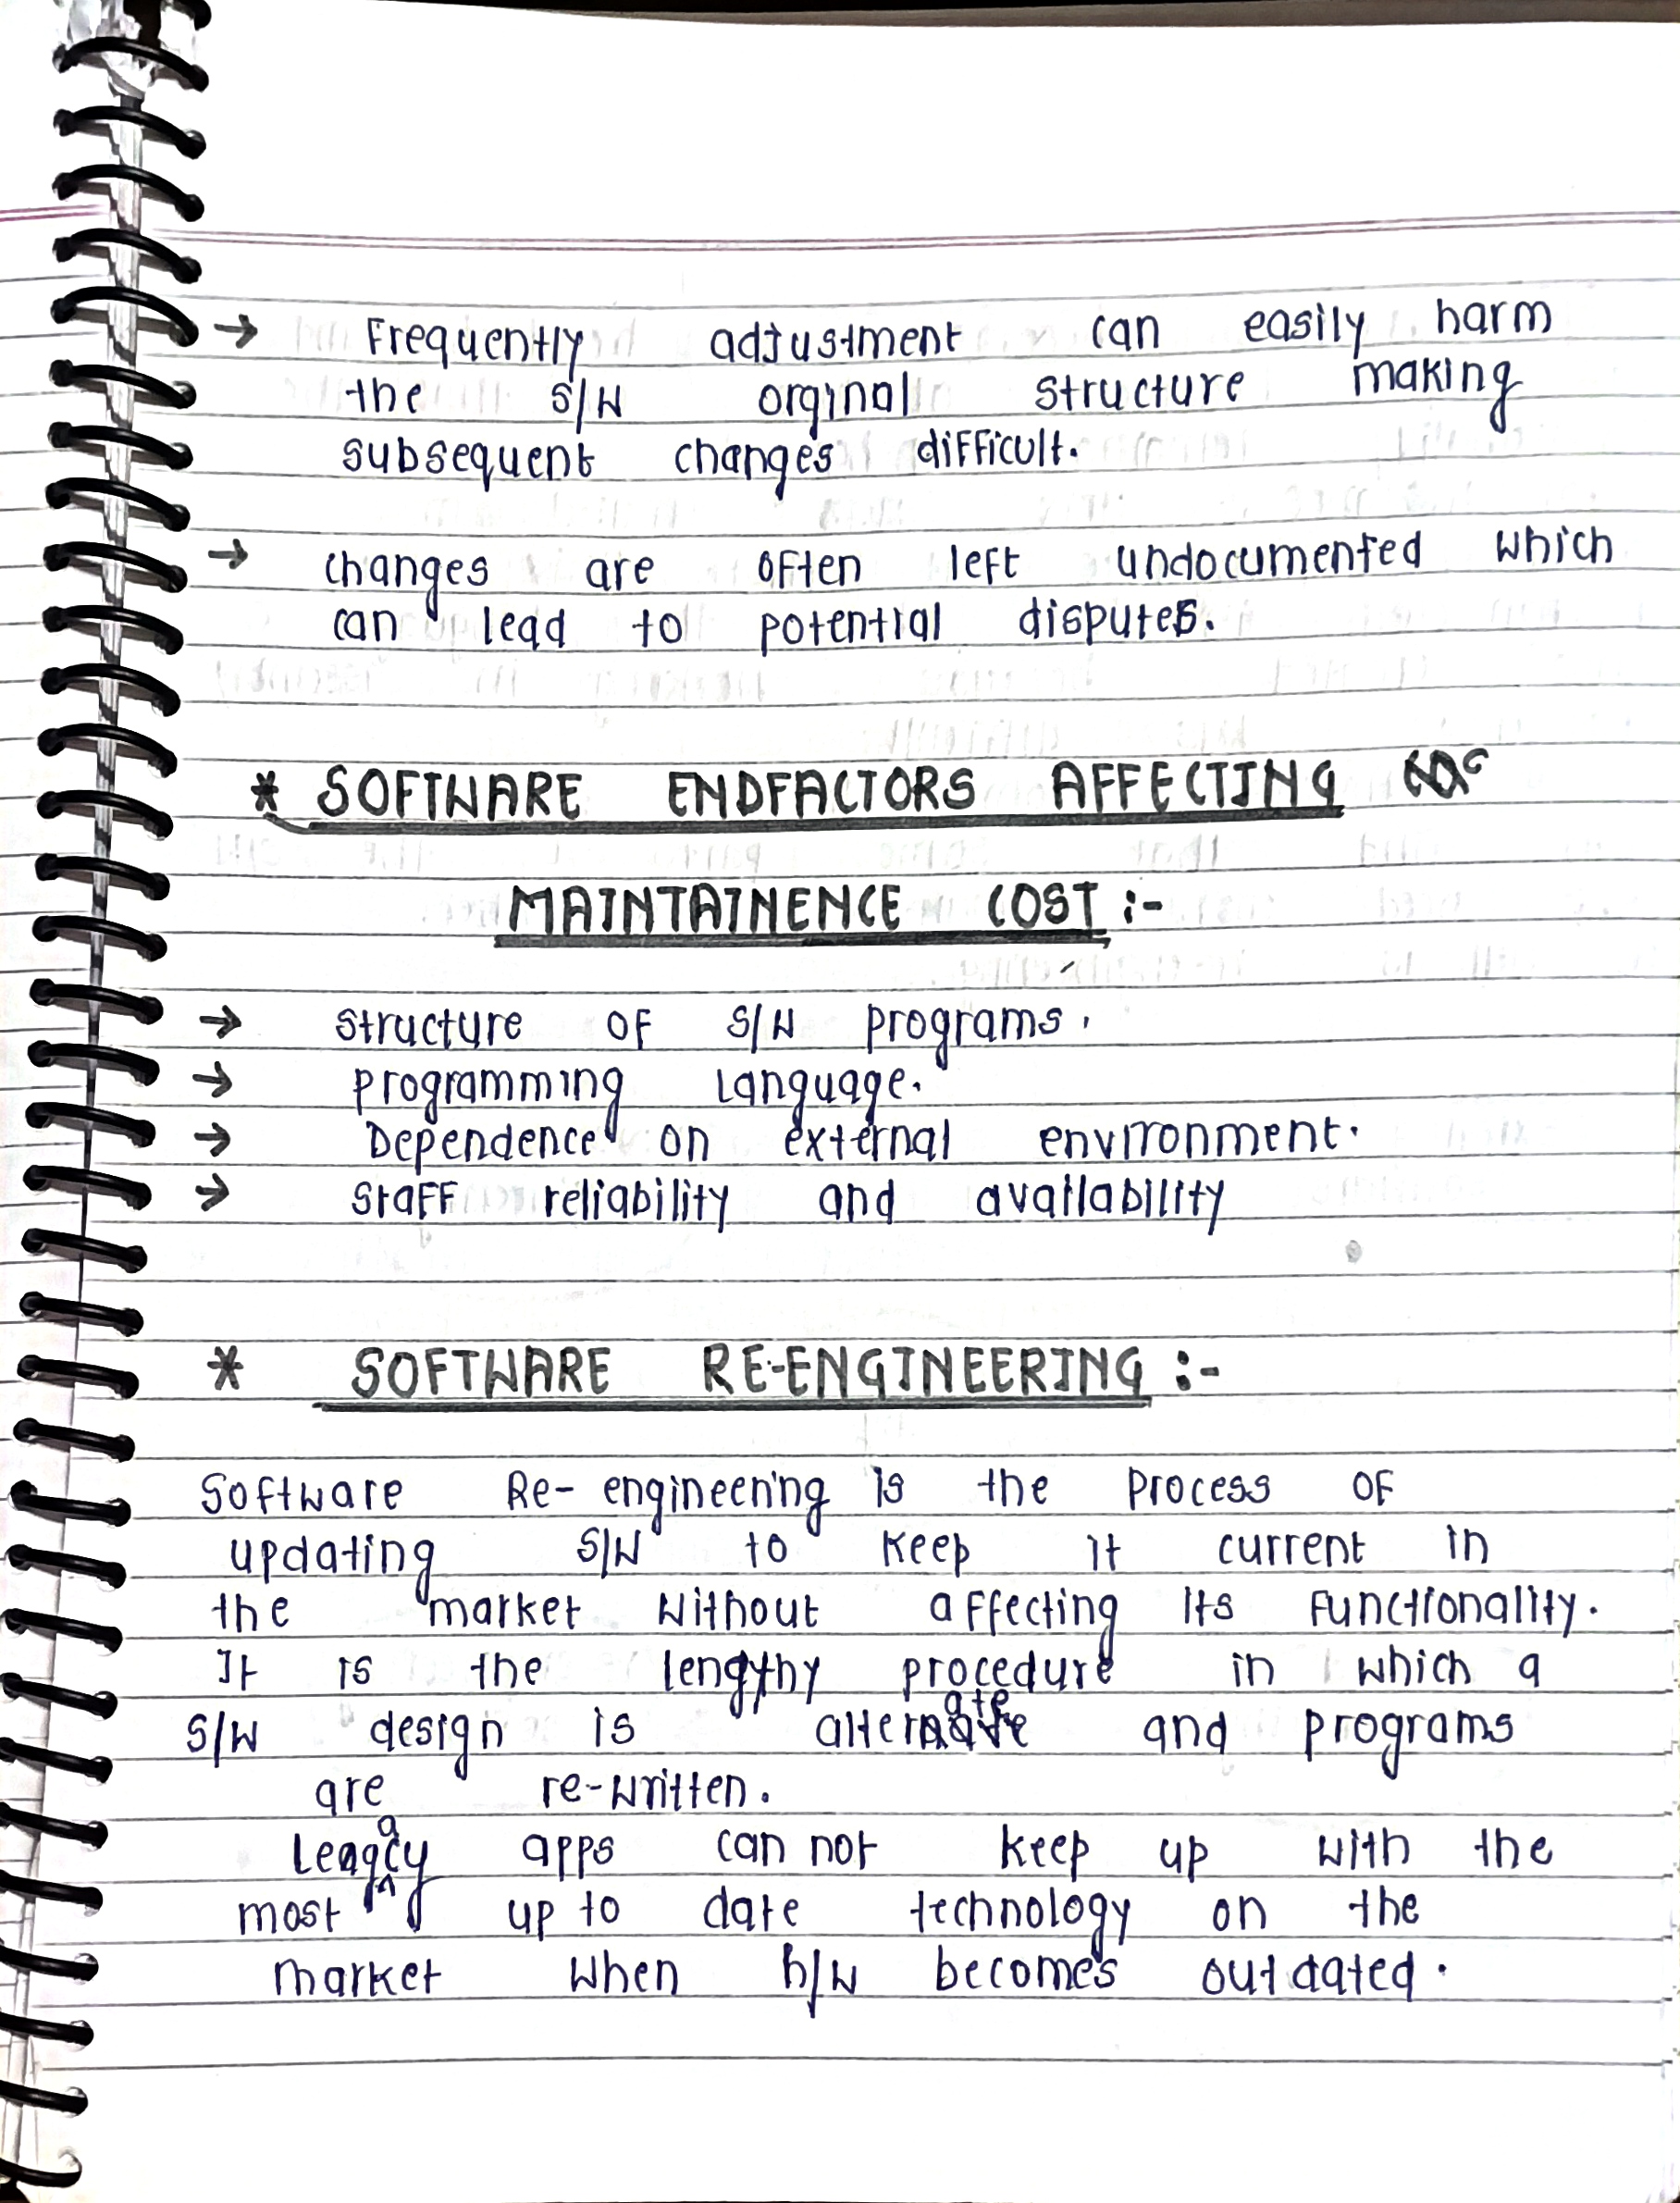 → Frequently adjustment can easily harm
the S/W orginal structure making
subsequent changes difficult.
→ changes are often left undocumented which
can lead to potential disputes.
* SOFTWARE ENDFACTORS AFFECTING
MAINTAINENCE COST :-
→ structure of S/W programs.
→ programming Language.
→ Dependence on external environment.
→ Staff reliability and availability
* SOFTWARE RE-ENGINEERING :-
Software Re-engineering is the process of
updating S/W to keep it current in
the market without affecting its functionality.
It is the lengthy procedure in which a
S/W design is alternate and programs
are re-written.
Leagacy apps can not keep up with the
most up to date technology on the
market when h/w becomes outdated.